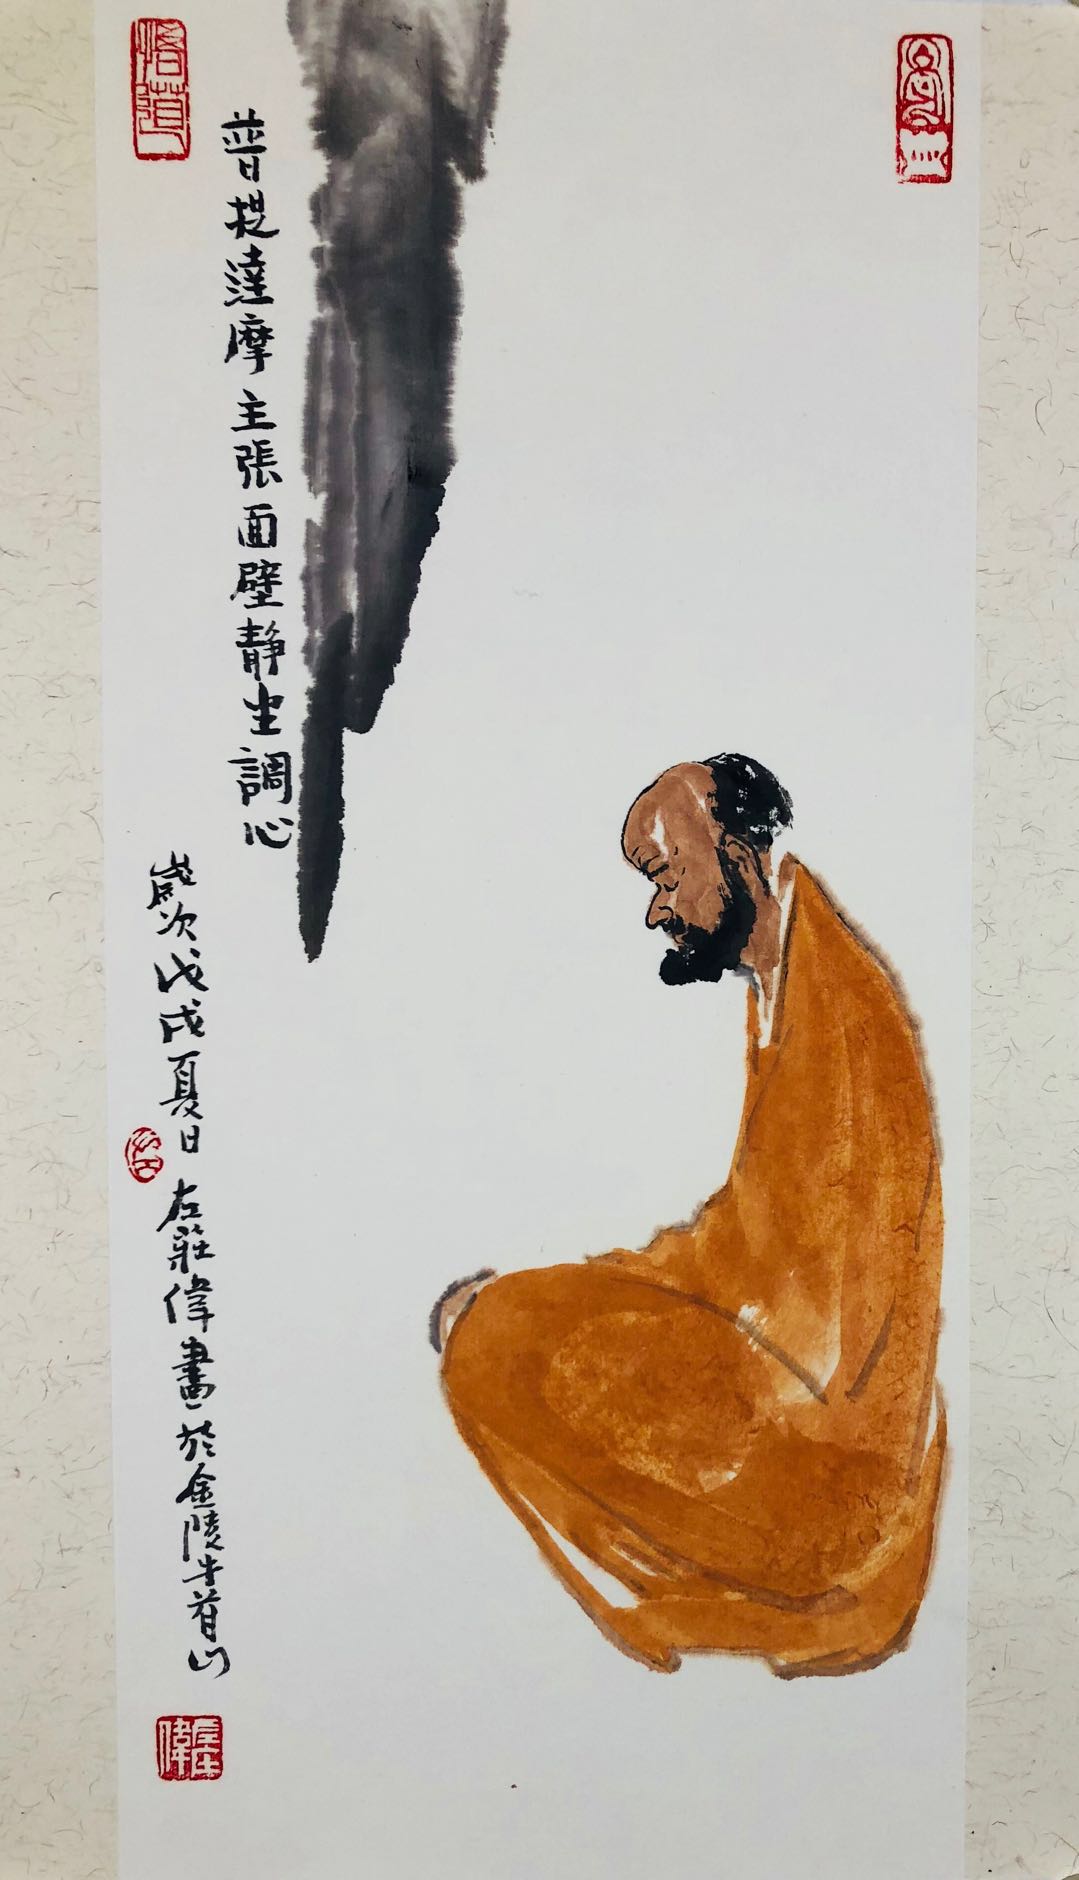 普提達摩主張面壁静坐調心
歲次戊戌夏日 左莊偉畫於金陵牛首山